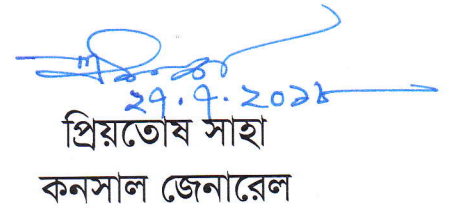 ২৭.৭.২০১৮
প্রিয়তোষ সাহা
কনসাল জেনারেল